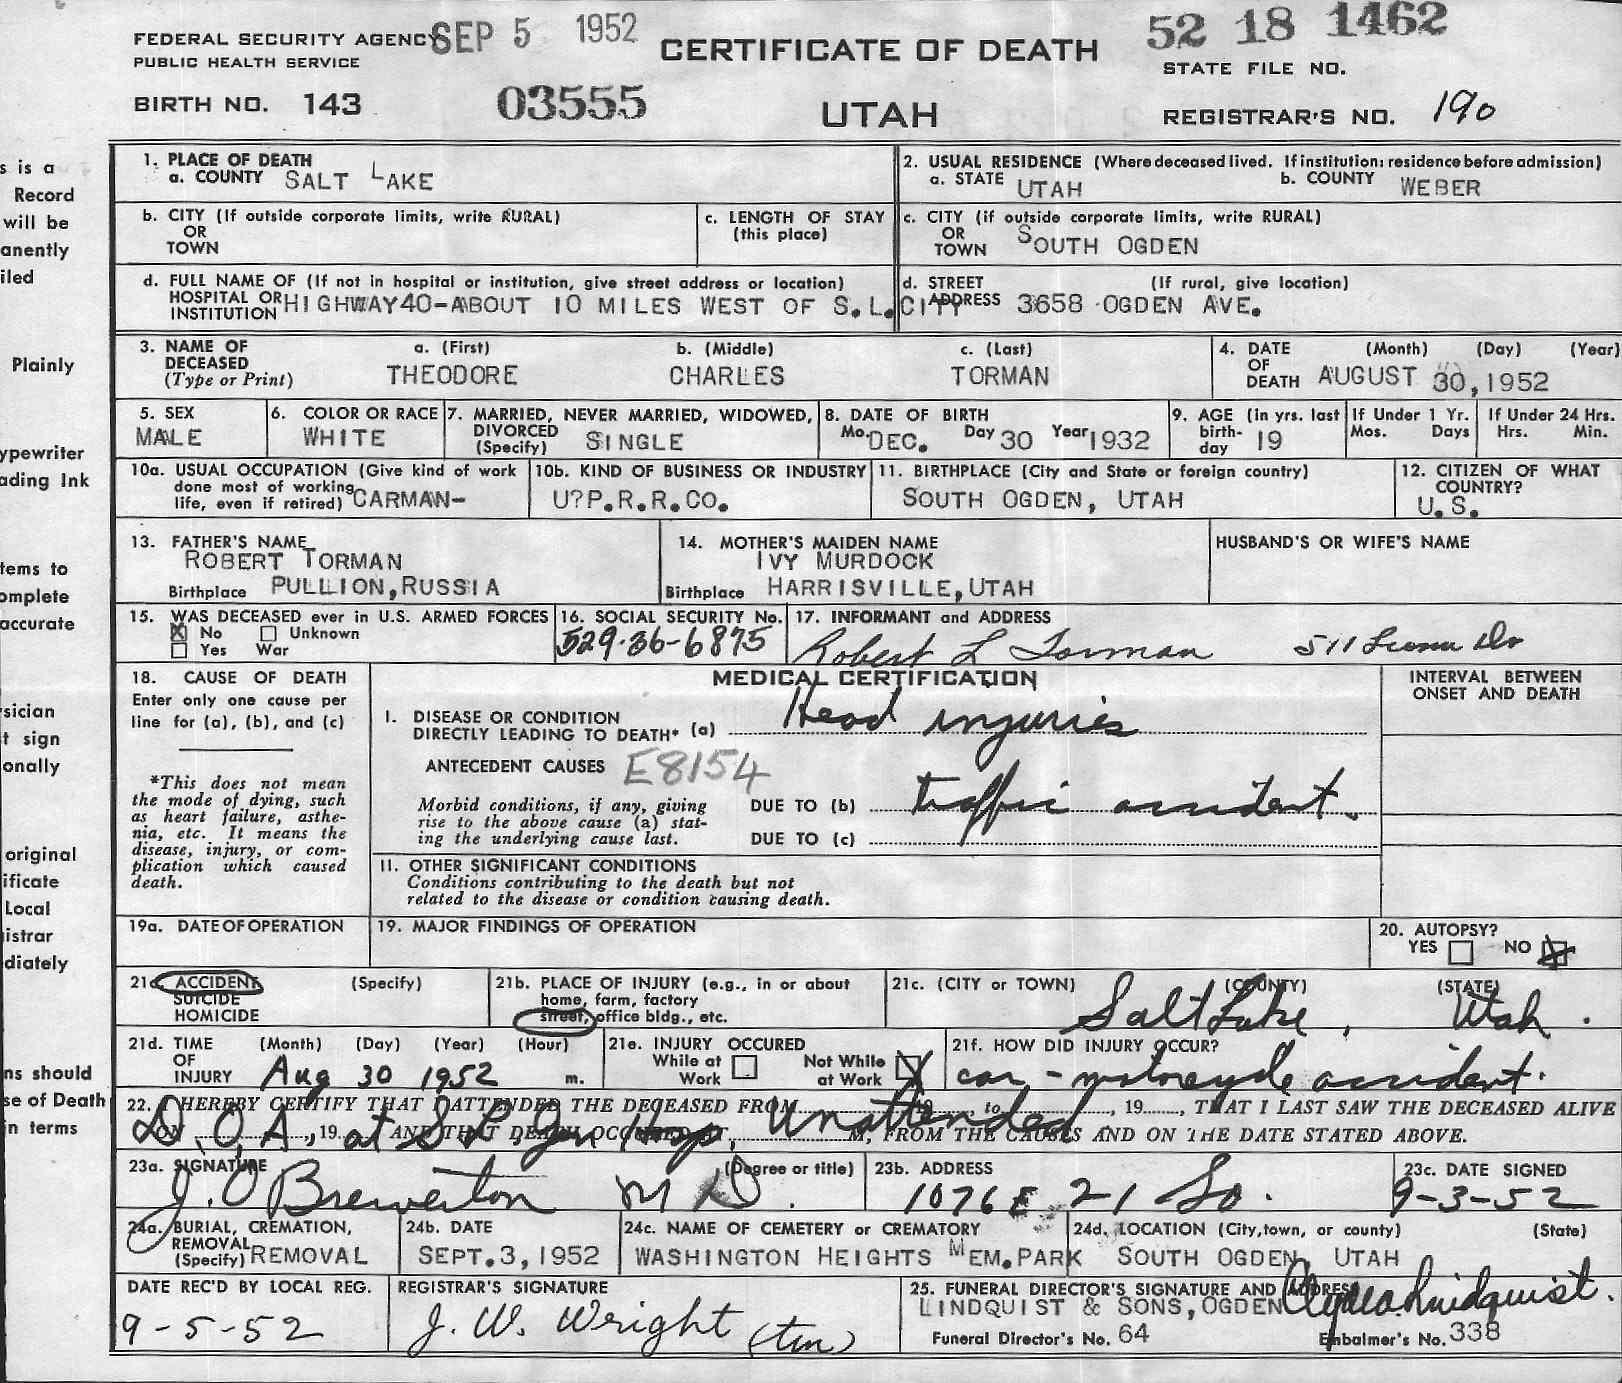 FEDERAL SECURITY AGENCY SEP 5 1952 CERTIFICATE OF DEATH 52 18 1462
PUBLIC HEALTH SERVICE STATE FILE NO.
BIRTH NO. 143 03555 UTAH REGISTRAR'S NO. 190
s is a
Record
will be
anently
iled
Plainly
ypewriter
ading Ink
tems to
omplete
accurate
sician
t sign
onally
original
ificate
Local
istrar
diately
ns should
se of Death
n terms
1. PLACE OF DEATH
a. COUNTY SALT LAKE
2. USUAL RESIDENCE (Where deceased lived. If institution: residence before admission)
a. STATE UTAH b. COUNTY WEBER
b. CITY (If outside corporate limits, write RURAL)
OR
TOWN
c. LENGTH OF STAY
(this place)
c. CITY (if outside corporate limits, write RURAL)
OR
TOWN SOUTH OGDEN
d. FULL NAME OF (If not in hospital or institution, give street address or location)
HOSPITAL OR
INSTITUTION HIGHWAY40-ABOUT 10 MILES WEST OF S.L.CITY
d. STREET (If rural, give location)
ADDRESS 3658 OGDEN AVE.
3. NAME OF a. (First) b. (Middle) c. (Last)
DECEASED
(Type or Print) THEODORE CHARLES TORMAN
4. DATE (Month) (Day) (Year)
OF
DEATH AUGUST 30,1952
5. SEX
MALE
6. COLOR OR RACE
WHITE
7. MARRIED, NEVER MARRIED, WIDOWED,
DIVORCED
(Specify) SINGLE
8. DATE OF BIRTH
Mo. DEC. Day 30 Year 1932
9. AGE (in yrs. last
birth-
day 19
If Under 1 Yr.
Mos. Days
If Under 24 Hrs.
Hrs. Min.
10a. USUAL OCCUPATION (Give kind of work
done most of working
life, even if retired) CARMAN-
10b. KIND OF BUSINESS OR INDUSTRY
U?P.R.R.CO.
11. BIRTHPLACE (City and State or foreign country)
SOUTH OGDEN, UTAH
12. CITIZEN OF WHAT
COUNTRY?
U.S.
13. FATHER'S NAME
ROBERT TORMAN
Birthplace PULLION,RUSSIA
14. MOTHER'S MAIDEN NAME
IVY MURDOCK
Birthplace HARRISVILLE,UTAH
HUSBAND'S OR WIFE'S NAME
15. WAS DECEASED ever in U.S. ARMED FORCES
X No Unknown
Yes War
16. SOCIAL SECURITY No.
529-36-6875
17. INFORMANT and ADDRESS
Robert L Torman 511
18. CAUSE OF DEATH
Enter only one cause per
line for (a), (b), and (c)
*This does not mean
the mode of dying, such
as heart failure, asthe-
nia, etc. It means the
disease, injury, or com-
plication which caused
death.
MEDICAL CERTIFICATION
I. DISEASE OR CONDITION
DIRECTLY LEADING TO DEATH* (a) Head injuries
ANTECEDENT CAUSES E8154
Morbid conditions, if any, giving
rise to the above cause (a) stat-
ing the underlying cause last.
DUE TO (b) traffic accident.
DUE TO (c)
II. OTHER SIGNIFICANT CONDITIONS
Conditions contributing to the death but not
related to the disease or condition causing death.
INTERVAL BETWEEN
ONSET AND DEATH
19a. DATE OF OPERATION
19. MAJOR FINDINGS OF OPERATION
20. AUTOPSY?
YES NO X
21a. ACCIDENT (Specify)
SUICIDE
HOMICIDE
21b. PLACE OF INJURY (e.g., in or about
home, farm, factory
street, office bldg., etc.
21c. (CITY or TOWN) (COUNTY) (STATE)
Salt Lake, Utah.
21d. TIME (Month) (Day) (Year) (Hour)
OF
INJURY Aug 30 1952 m.
21e. INJURY OCCURED
While at Not While
Work at Work X
21f. HOW DID INJURY OCCUR?
car - motorcycle accident.
22. I HEREBY CERTIFY THAT I ATTENDED THE DECEASED FROM 19 , to , 19 , THAT I LAST SAW THE DECEASED ALIVE
ON , 19 AND THAT DEATH OCCURRED AT M, FROM THE CAUSES AND ON THE DATE STATED ABOVE.
D.O.A. at S L Gen Hosp, Unattended
23a. SIGNATURE (Degree or title)
J. O Brewerton M D.
23b. ADDRESS
1076 E 21 So.
23c. DATE SIGNED
9-3-52
24a. BURIAL, CREMATION,
REMOVAL
(Specify) REMOVAL
24b. DATE
SEPT.3,1952
24c. NAME OF CEMETERY or CREMATORY
WASHINGTON HEIGHTS MEM.PARK
24d. LOCATION (City,town, or county) (State)
SOUTH OGDEN UTAH
DATE REC'D BY LOCAL REG.
9-5-52
REGISTRAR'S SIGNATURE
J. W. Wright (tm)
25. FUNERAL DIRECTOR'S SIGNATURE AND ADDRESS
LINDQUIST & SONS,OGDEN Lindquist.
Funeral Director's No. 64 Embalmer's No. 338